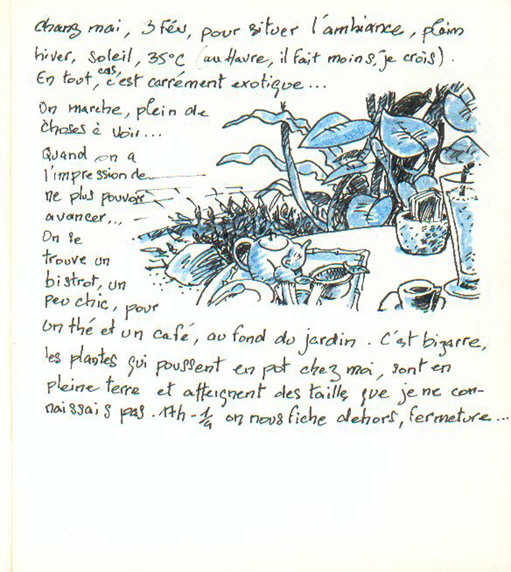 chang mai, 3 Fév, pour situer l'ambiance, plein
hiver, soleil, 35°C (au Havre, il fait moins, je crois).
En tout cas, c'est carrément exotique...
On marche, plein de
choses à voir...
Quand on a
l'impression de
ne plus pouvoir
avancer...
On se
trouve un
bistrot, un
peu chic, pour
un thé et un café, au fond du jardin. C'est bizarre,
les plantes qui poussent en pot chez moi, sont en
pleine terre et atteignent des taille que je ne con-
naissais pas. 17h - 1/4 on nous fiche dehors, fermeture...